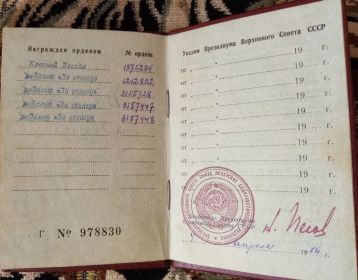 Награжден орденом № ордена
Красной Звезды 1575234
медалью «За отвагу» 1212832
медалью «За отвагу» 3155728
медалью «За отвагу» 3157447
медалью «За отвагу» 3157448
Г № 978830
Указом Президиума Верховного Совета СССР
от " 19 г.
от " 19 г.
от " 19 г.
от " 19 г.
от " 19 г.
от " 19 г.
от " 19 г.
от " 19 г.
апреля 1956 г.